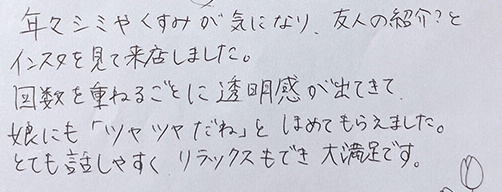 年々シミやくすみが気になり、友人の紹介?と
インスタを見て来店しました。
回数を重ねるごとに透明感が出てきて
娘にも「ツヤツヤだね」とほめてもらえました。
とても話しやすくリラックスもでき大満足です。